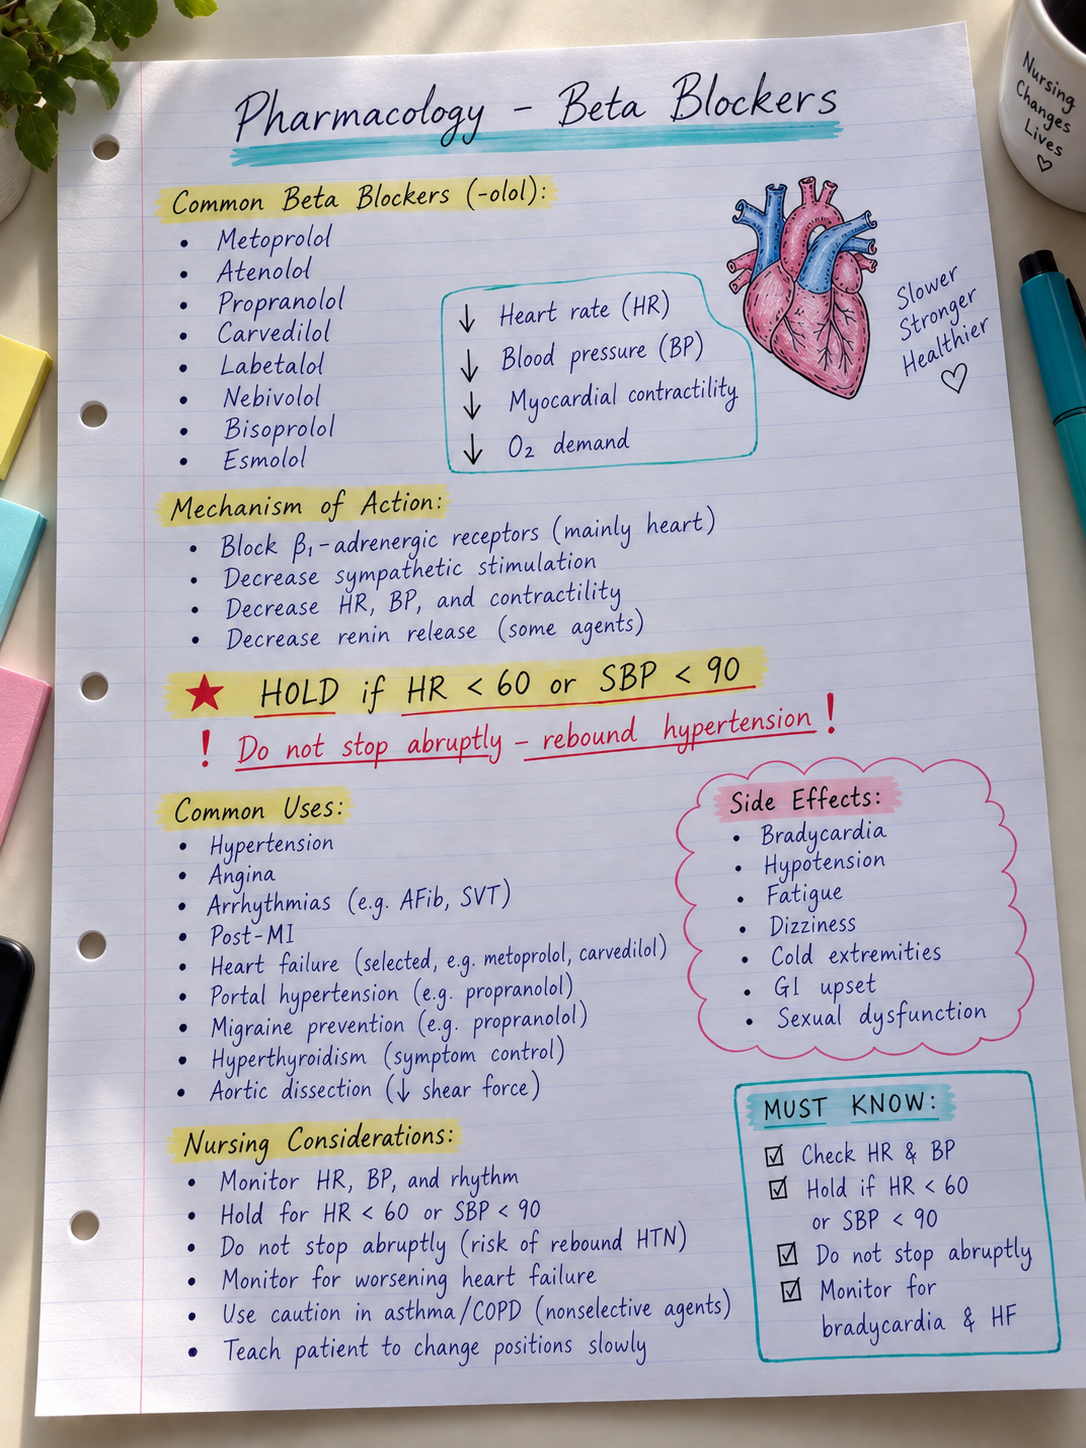 Pharmacology - Beta Blockers
Common Beta Blockers (-olol):
• Metoprolol
• Atenolol
• Propranolol
• Carvedilol
• Labetalol
• Nebivolol
• Bisoprolol
• Esmolol
↓ Heart rate (HR)
↓ Blood pressure (BP)
↓ Myocardial contractility
↓ O₂ demand
Slower
Stronger
Healthier
♡
Nursing
Changes
Lives
♡
Mechanism of Action:
• Block β₁-adrenergic receptors (mainly heart)
• Decrease sympathetic stimulation
• Decrease HR, BP, and contractility
• Decrease renin release (some agents)
★ HOLD if HR < 60 or SBP < 90
! Do not stop abruptly – rebound hypertension !
Common Uses:
• Hypertension
• Angina
• Arrhythmias (e.g. AFib, SVT)
• Post-MI
• Heart failure (selected, e.g. metoprolol, carvedilol)
• Portal hypertension (e.g. propranolol)
• Migraine prevention (e.g. propranolol)
• Hyperthyroidism (symptom control)
• Aortic dissection (↓ shear force)
Side Effects:
• Bradycardia
• Hypotension
• Fatigue
• Dizziness
• Cold extremities
• GI upset
• Sexual dysfunction
Nursing Considerations:
• Monitor HR, BP, and rhythm
• Hold for HR < 60 or SBP < 90
• Do not stop abruptly (risk of rebound HTN)
• Monitor for worsening heart failure
• Use caution in asthma/COPD (nonselective agents)
• Teach patient to change positions slowly
MUST KNOW:
☑ Check HR & BP
☑ Hold if HR < 60
or SBP < 90
☑ Do not stop abruptly
☑ Monitor for
bradycardia & HF